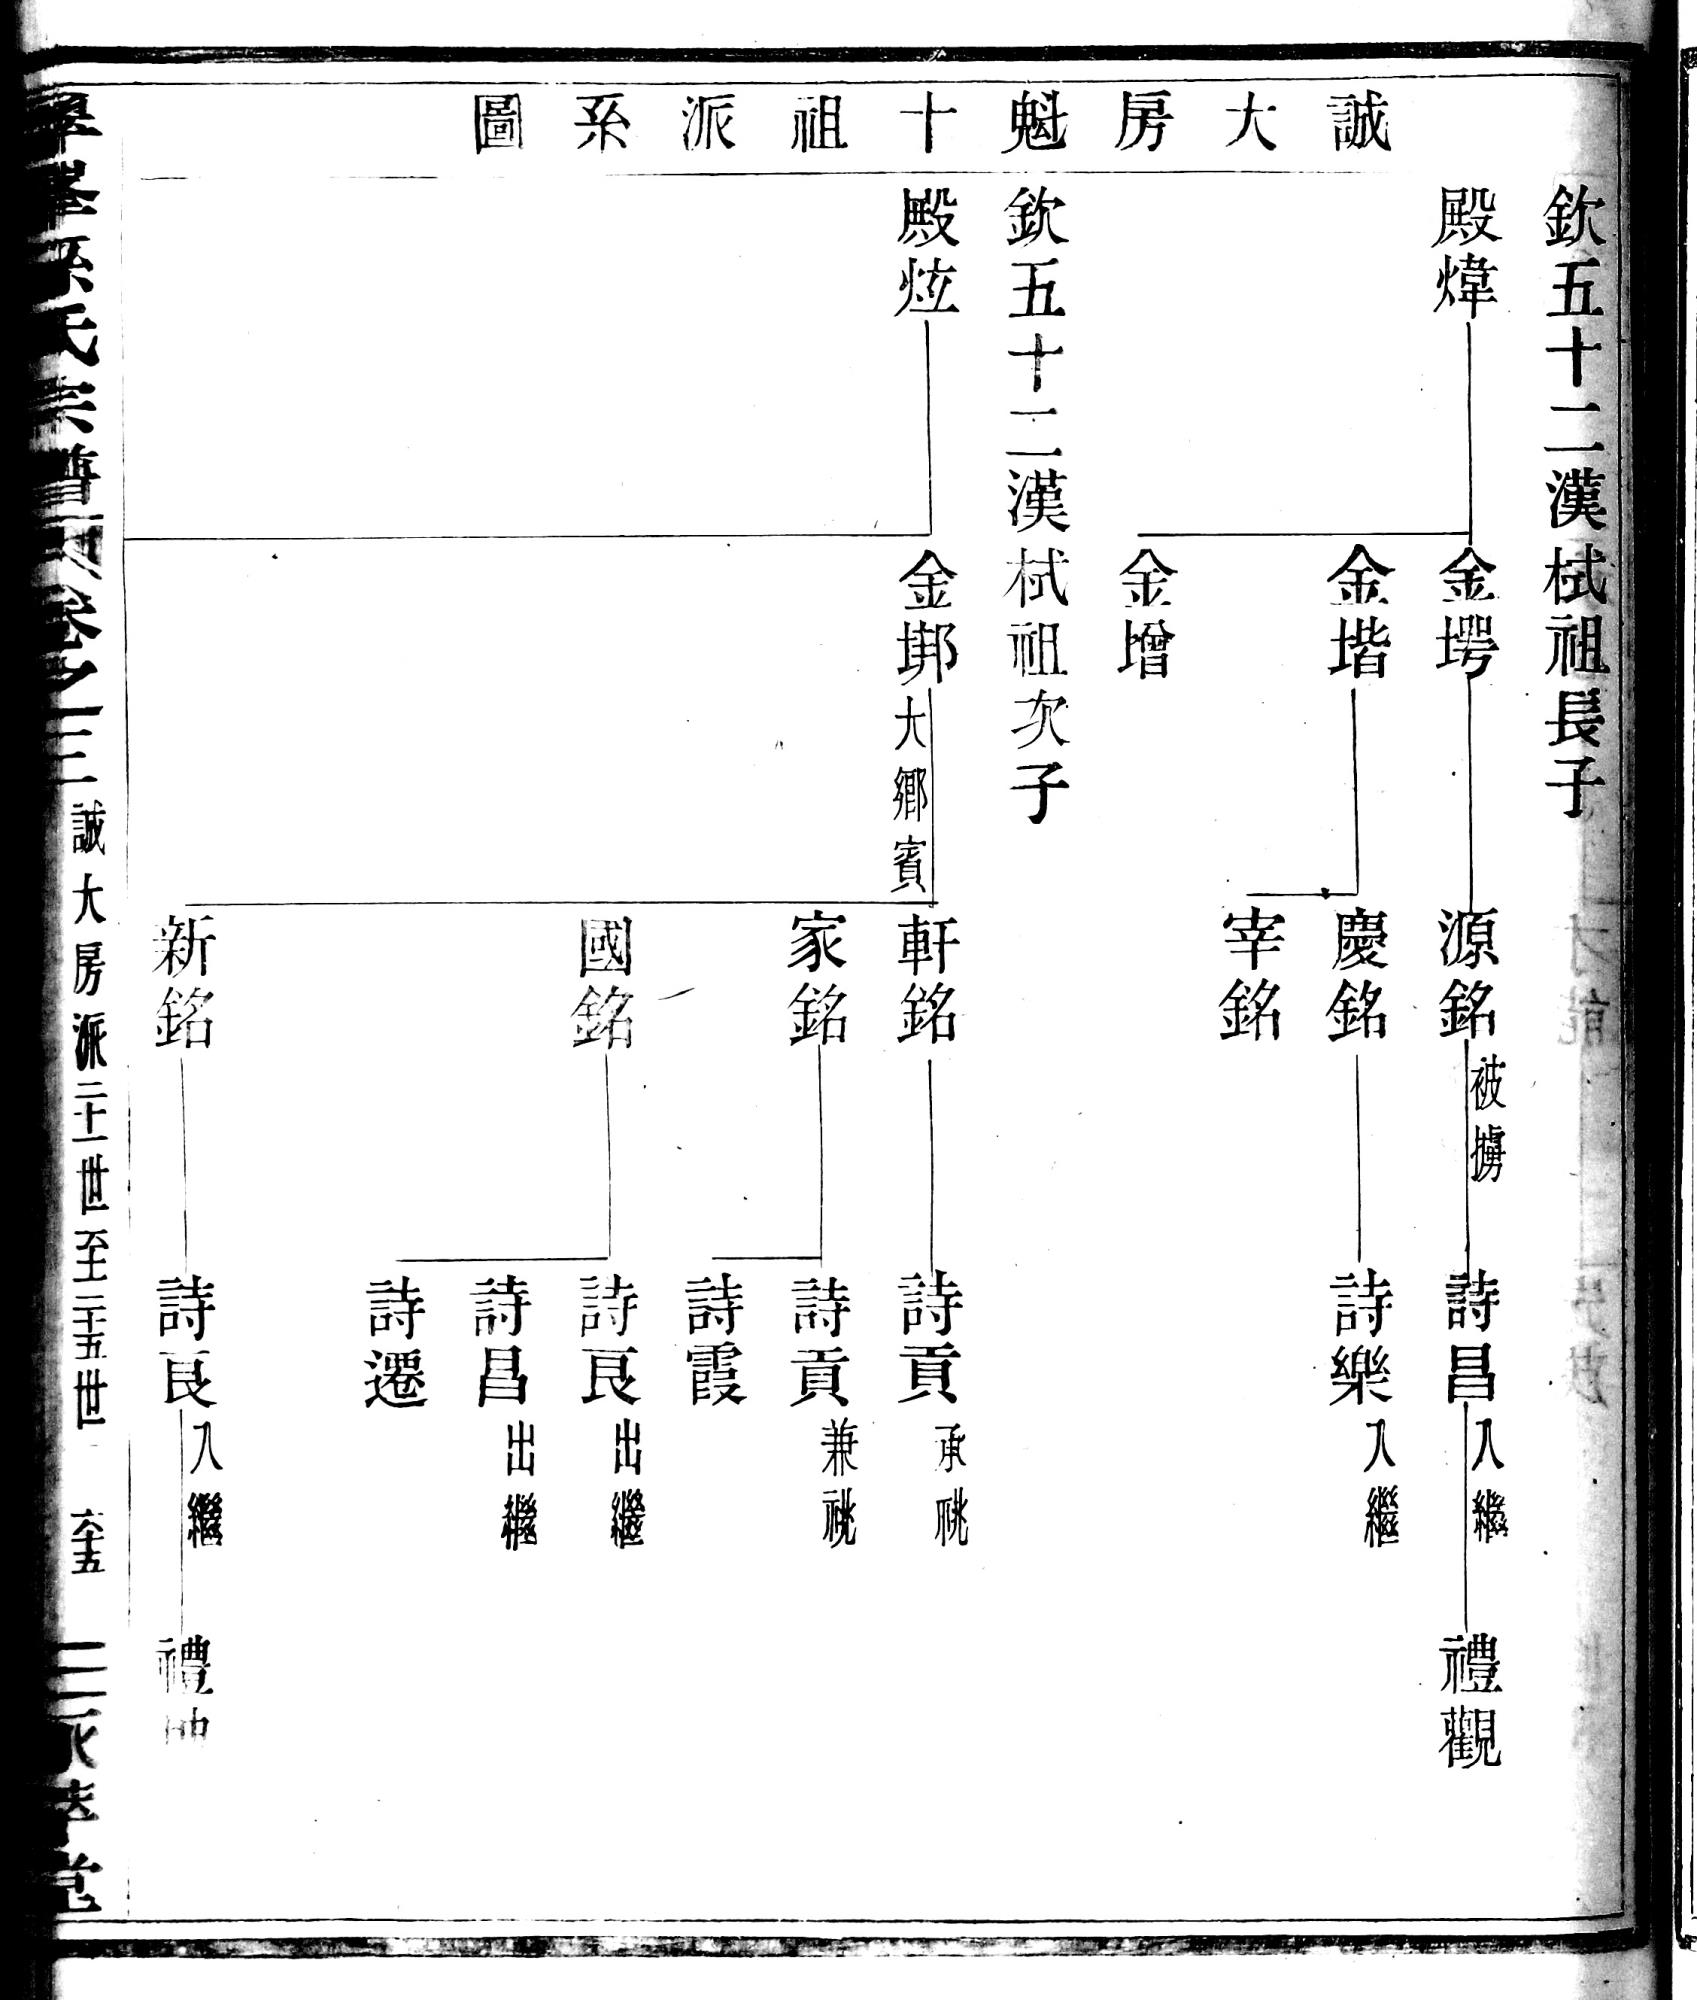 誠大房魁十祖派系圖
欽五十二漢栻祖長子
殿煒
金堮
金堦
金增
源銘被擄
慶銘
宰銘
詩昌入繼
詩樂入繼
禮觀
欽五十二漢栻祖次子
殿炫
金垹大鄉賓
軒銘
家銘
國銘
新銘
詩貢承祧
詩貢兼祧
詩霞
詩良出繼
詩昌出繼
詩遷
詩良入繼
禮
孫氏宗譜卷之三 誠大房派二十一世至二十五世 六十五 堂